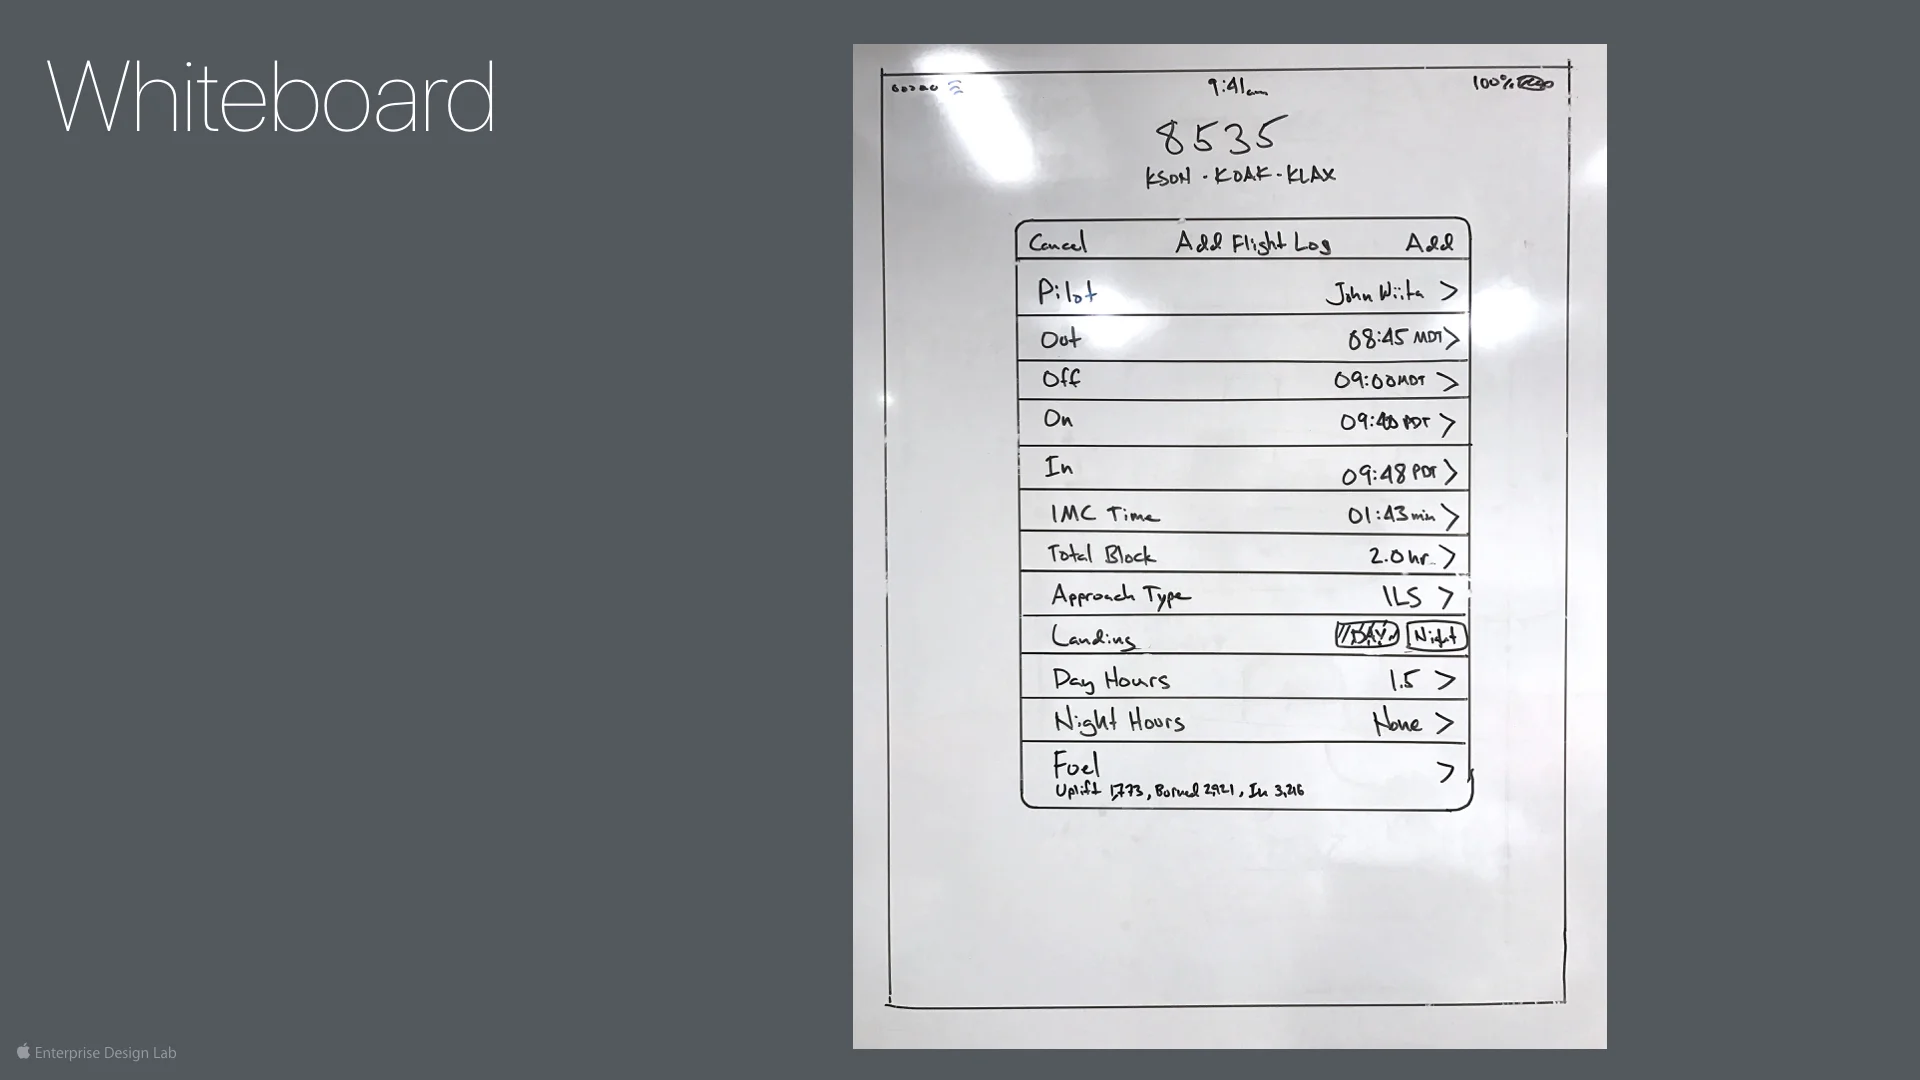 Whiteboard
9:41am 100%
8535
KSON - KOAK - KLAX
Cancel Add Flight Log Add
Pilot John Wiita >
Out 08:45 MDT >
Off 09:00 MDT >
On 09:40 PDT >
In 09:48 PDT >
IMC Time 01:43 min >
Total Block 2.0 hr >
Approach Type ILS >
Landing DAY Night
Day Hours 1.5 >
Night Hours None >
Fuel >
Uplift 1,773, Burned 2,921, In 3,216
Enterprise Design Lab